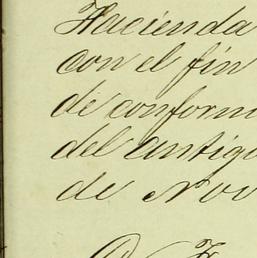 Hacienda
con el fin
de conform
del antigu
de Nov